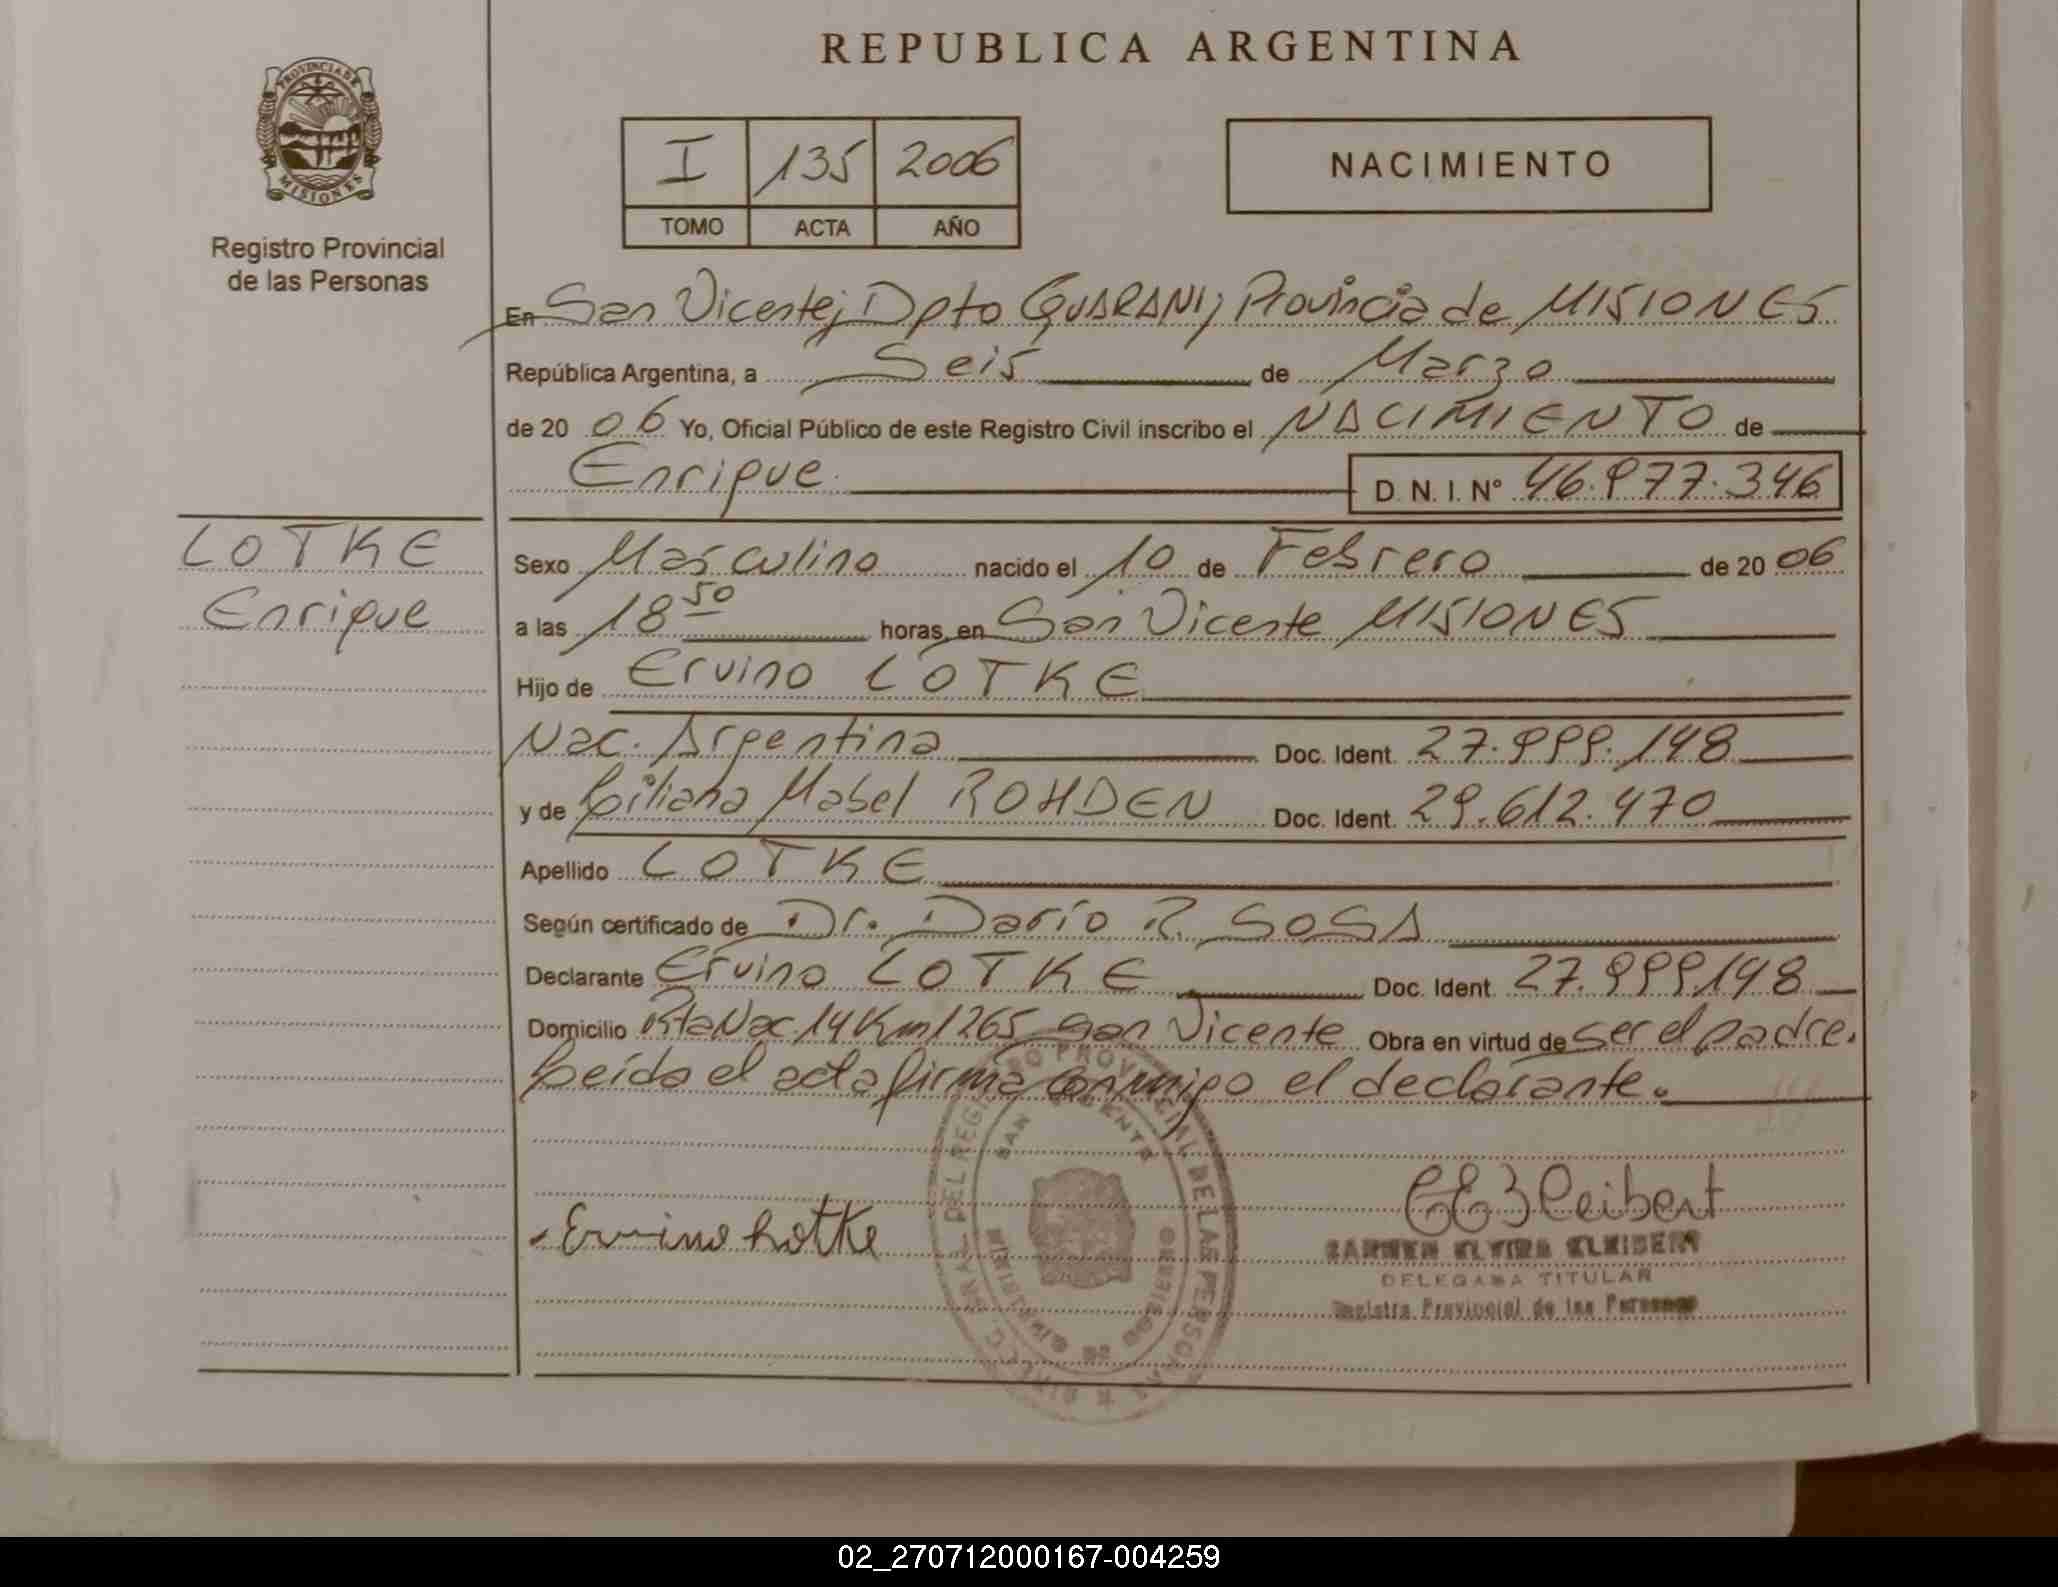 REPUBLICA ARGENTINA
PROVINCIA DE
MISIONES
Registro Provincial
de las Personas
I 135 2006
TOMO ACTA AÑO
NACIMIENTO
En San Vicente, Dpto GUARANI, Provincia de MISIONES
República Argentina, a Seis de Marzo
de 20 06 Yo, Oficial Público de este Registro Civil inscribo el NACIMIENTO de
Enrique D. N. I. N° 46.977.346
LOTKE
Enrique
Sexo Masculino nacido el 10 de Febrero de 20 06
a las 18 50 horas, en San Vicente MISIONES
Hijo de Ervino LOTKE
Nac. Argentina Doc. Ident. 27.999.198
y de Liliana Mabel ROHDEN Doc. Ident. 29.612.470
Apellido LOTKE
Según certificado de Dr. Darío R. SOSA
Declarante Ervino LOTKE Doc. Ident. 27.999.198
Domicilio Rta Nac. 14 Km 1265 San Vicente Obra en virtud de ser el padre.
Leída el acta firma conmigo el declarante.
Ervino Lotke
CARMEN ELVIRA KLEIBERT
DELEGADA TITULAR
Registro Provincial de las Personas
DEL REGISTRO PROVINCIAL DE LAS PERSONAS
SAN VICENTE
02_270712000167-004259